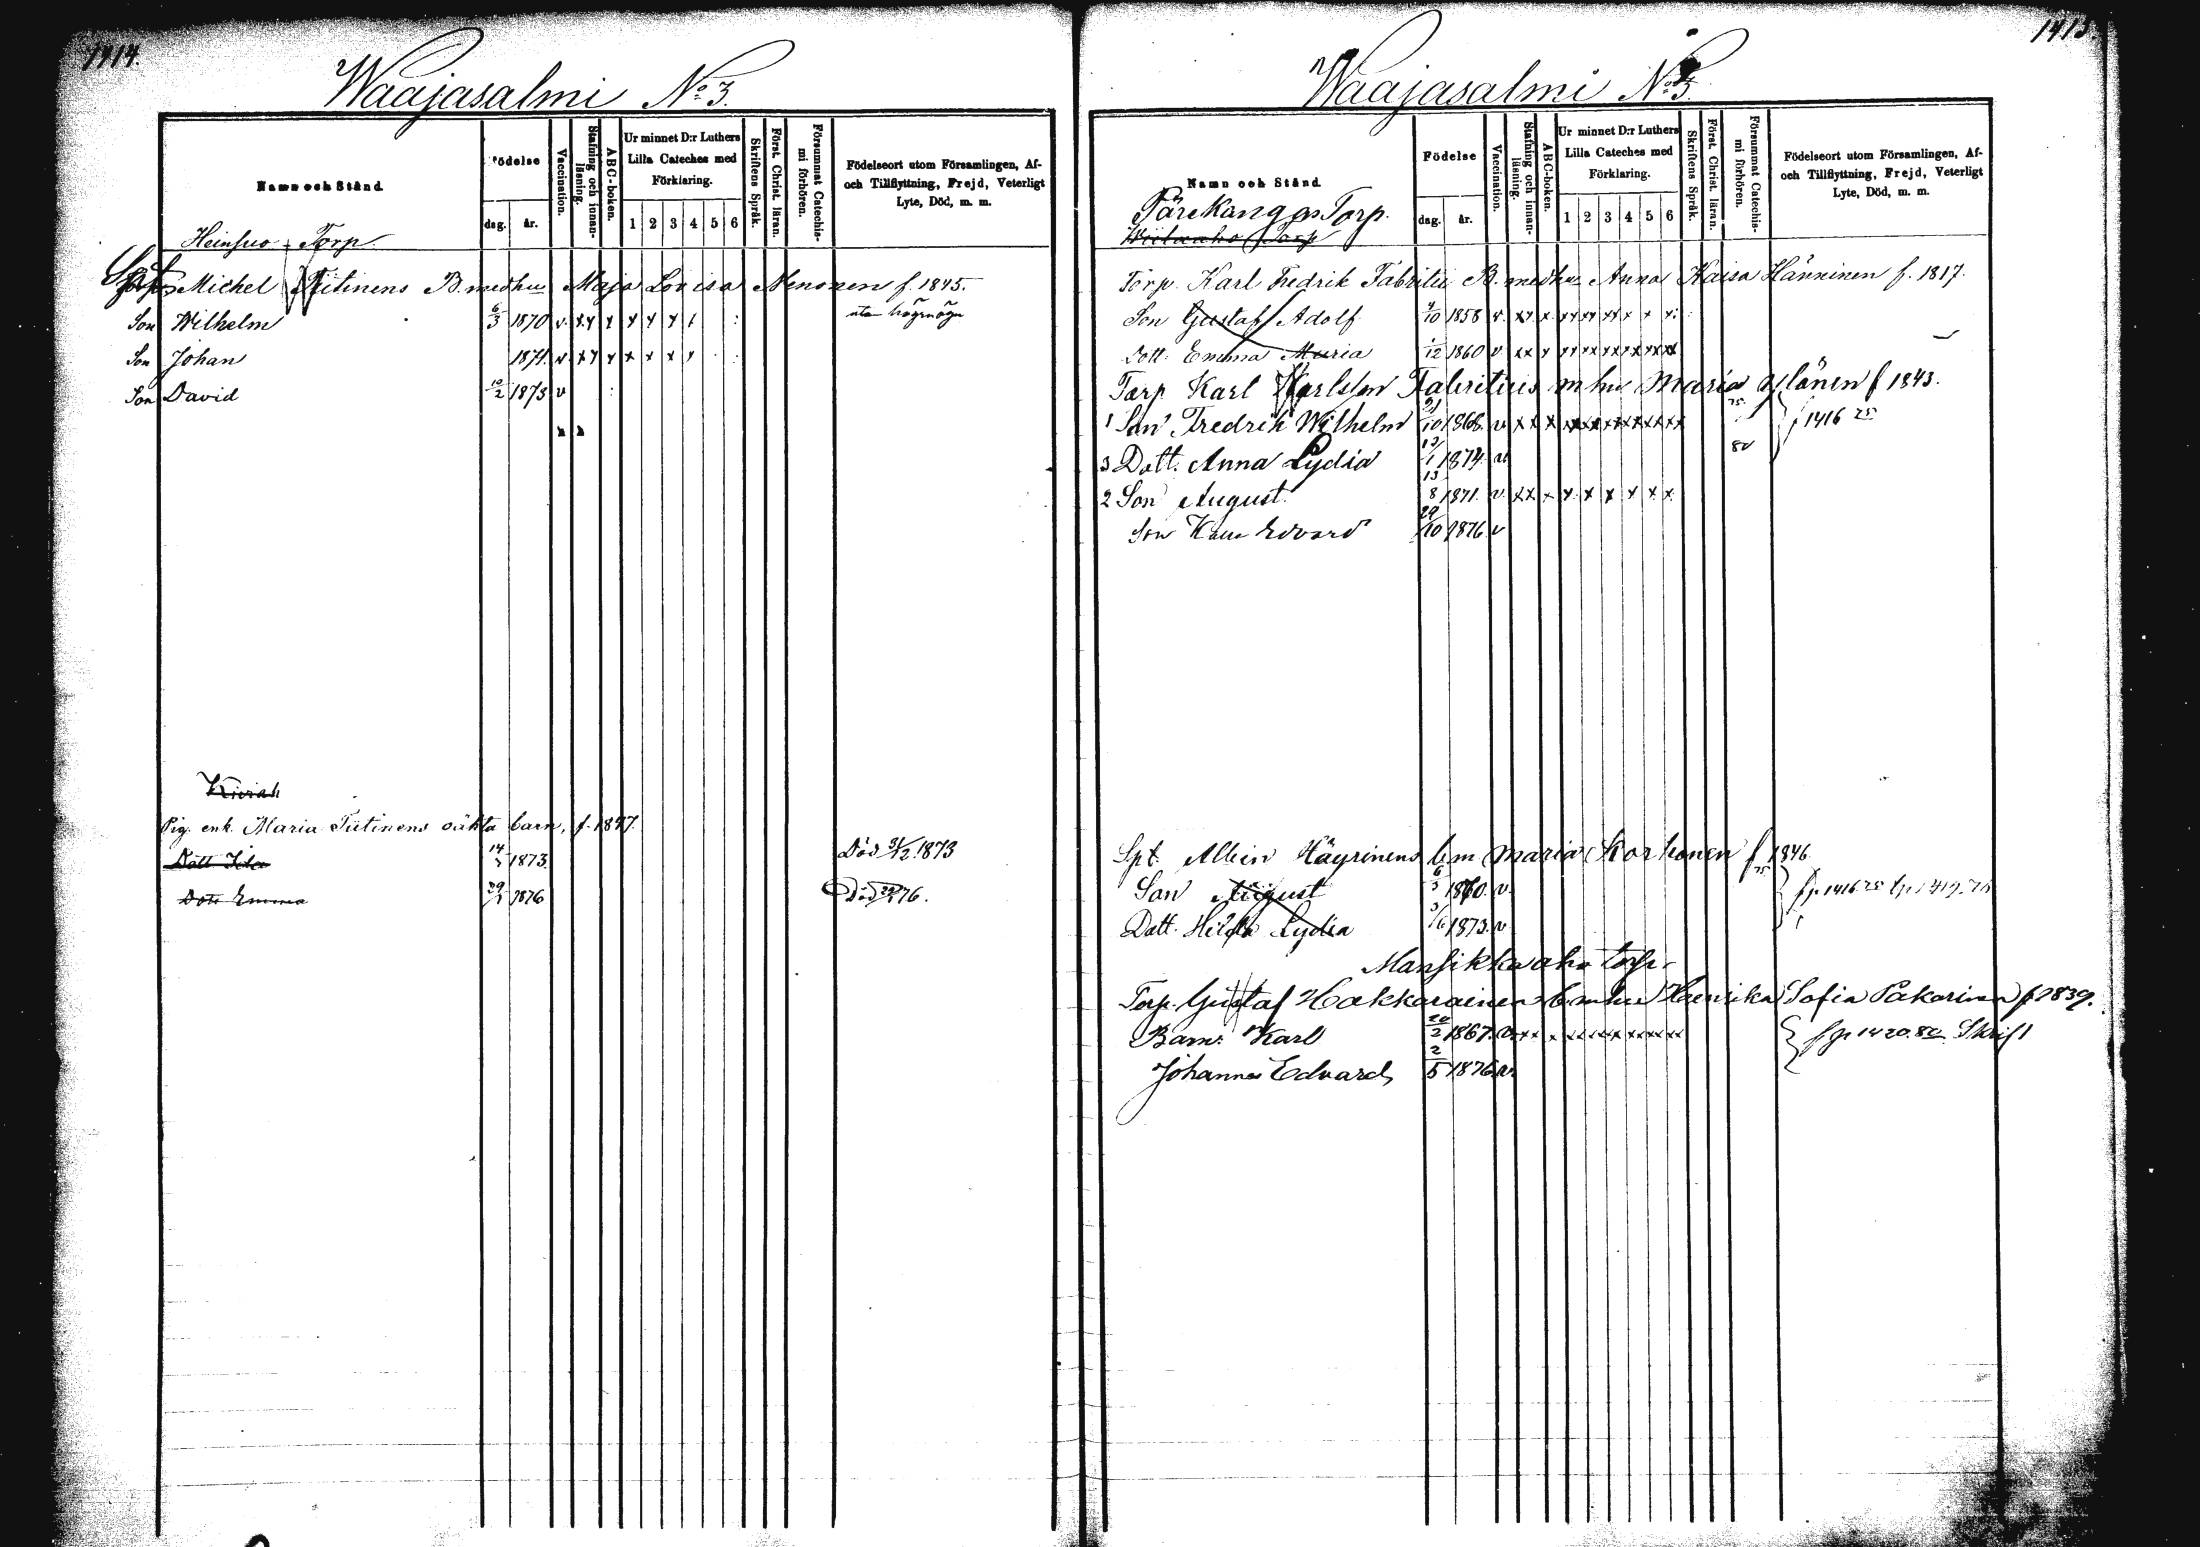 1414.
Waajasalmi No 3.
Namn och Stånd
Födelse
dag.
år.
Vaccination.
Stafning och innanläsning.
ABC-boken.
Ur minnet D:r Luthers Lilla Cateches med Förklaring.
1 2 3 4 5 6
Skriftens Språk.
Först. Christ. läran.
Försummat Catechismi förhören.
Födelseort utom Församlingen, Af- och Tillflyttning, Frejd, Veterligt Lyte, Död, m. m.
Heinsuo Torp.
Michel Tiitinens B. med hu Maja Lovisa Nenonen f. 1845.
Son Wilhelm 6/3 1870 v. x y x y y y
Son Johan 1871. v x y x x x x x
Son David 10/2 1873 v
Pig. enk. Maria Tiitinens oäkta barn, f. 1847.
Dott 14 1873 Död 31/12 1873
Dott Emma 1876 Död 76.
1415.
Waajasalmi No 3.
Namn och Stånd
Födelse
dag.
år.
Vaccination.
Stafning och innanläsning.
ABC-boken.
Ur minnet D:r Luthers Lilla Cateches med Förklaring.
1 2 3 4 5 6
Skriftens Språk.
Först. Christ. läran.
Försummat Catechismi förhören.
Födelseort utom Församlingen, Af- och Tillflyttning, Frejd, Veterligt Lyte, Död, m. m.
Pärekangas Torp.
Torp. Karl Fredrik Fabritii B. med hu Anna Kaisa Hänninen f. 1817.
Son Gustaf Adolf /10 1858 v. xx x xx xx xx x x x
Dott. Emma Maria /12 1860 v xx x xx xx xx xx xx xx
Torp Karl Karlson Fabritius m hu Maria Ylönen f 1843.
1 Son Fredrik Wilhelm 21/10 1868. v xx x xx xx xx xx xx xx 75 f 1416 75
3 Dott. Anna Lydia 13/1 1874. v 80
2 Son August. 13/8 1871. v. xx x x x x x x x
Son Edvard 29/10 1876. v
Spt. Albin Häyrinens b m Maria Korhonen f 1846
Son August 6/3 1870. v. 75 fp. 1416 75
Dott. Hilda Lydia 3/6 1873. v
Mansikkaaho torp.
Torp. Gustaf Hakkarainen b m hu Henrika Sofia Pakarinen f 1839.
Barn: Karl 20/2 1867. v. xx x xx xx xx xx xx xx f p 1420. 80 Skrift
Johannes Edvard 2/5 1876 v.